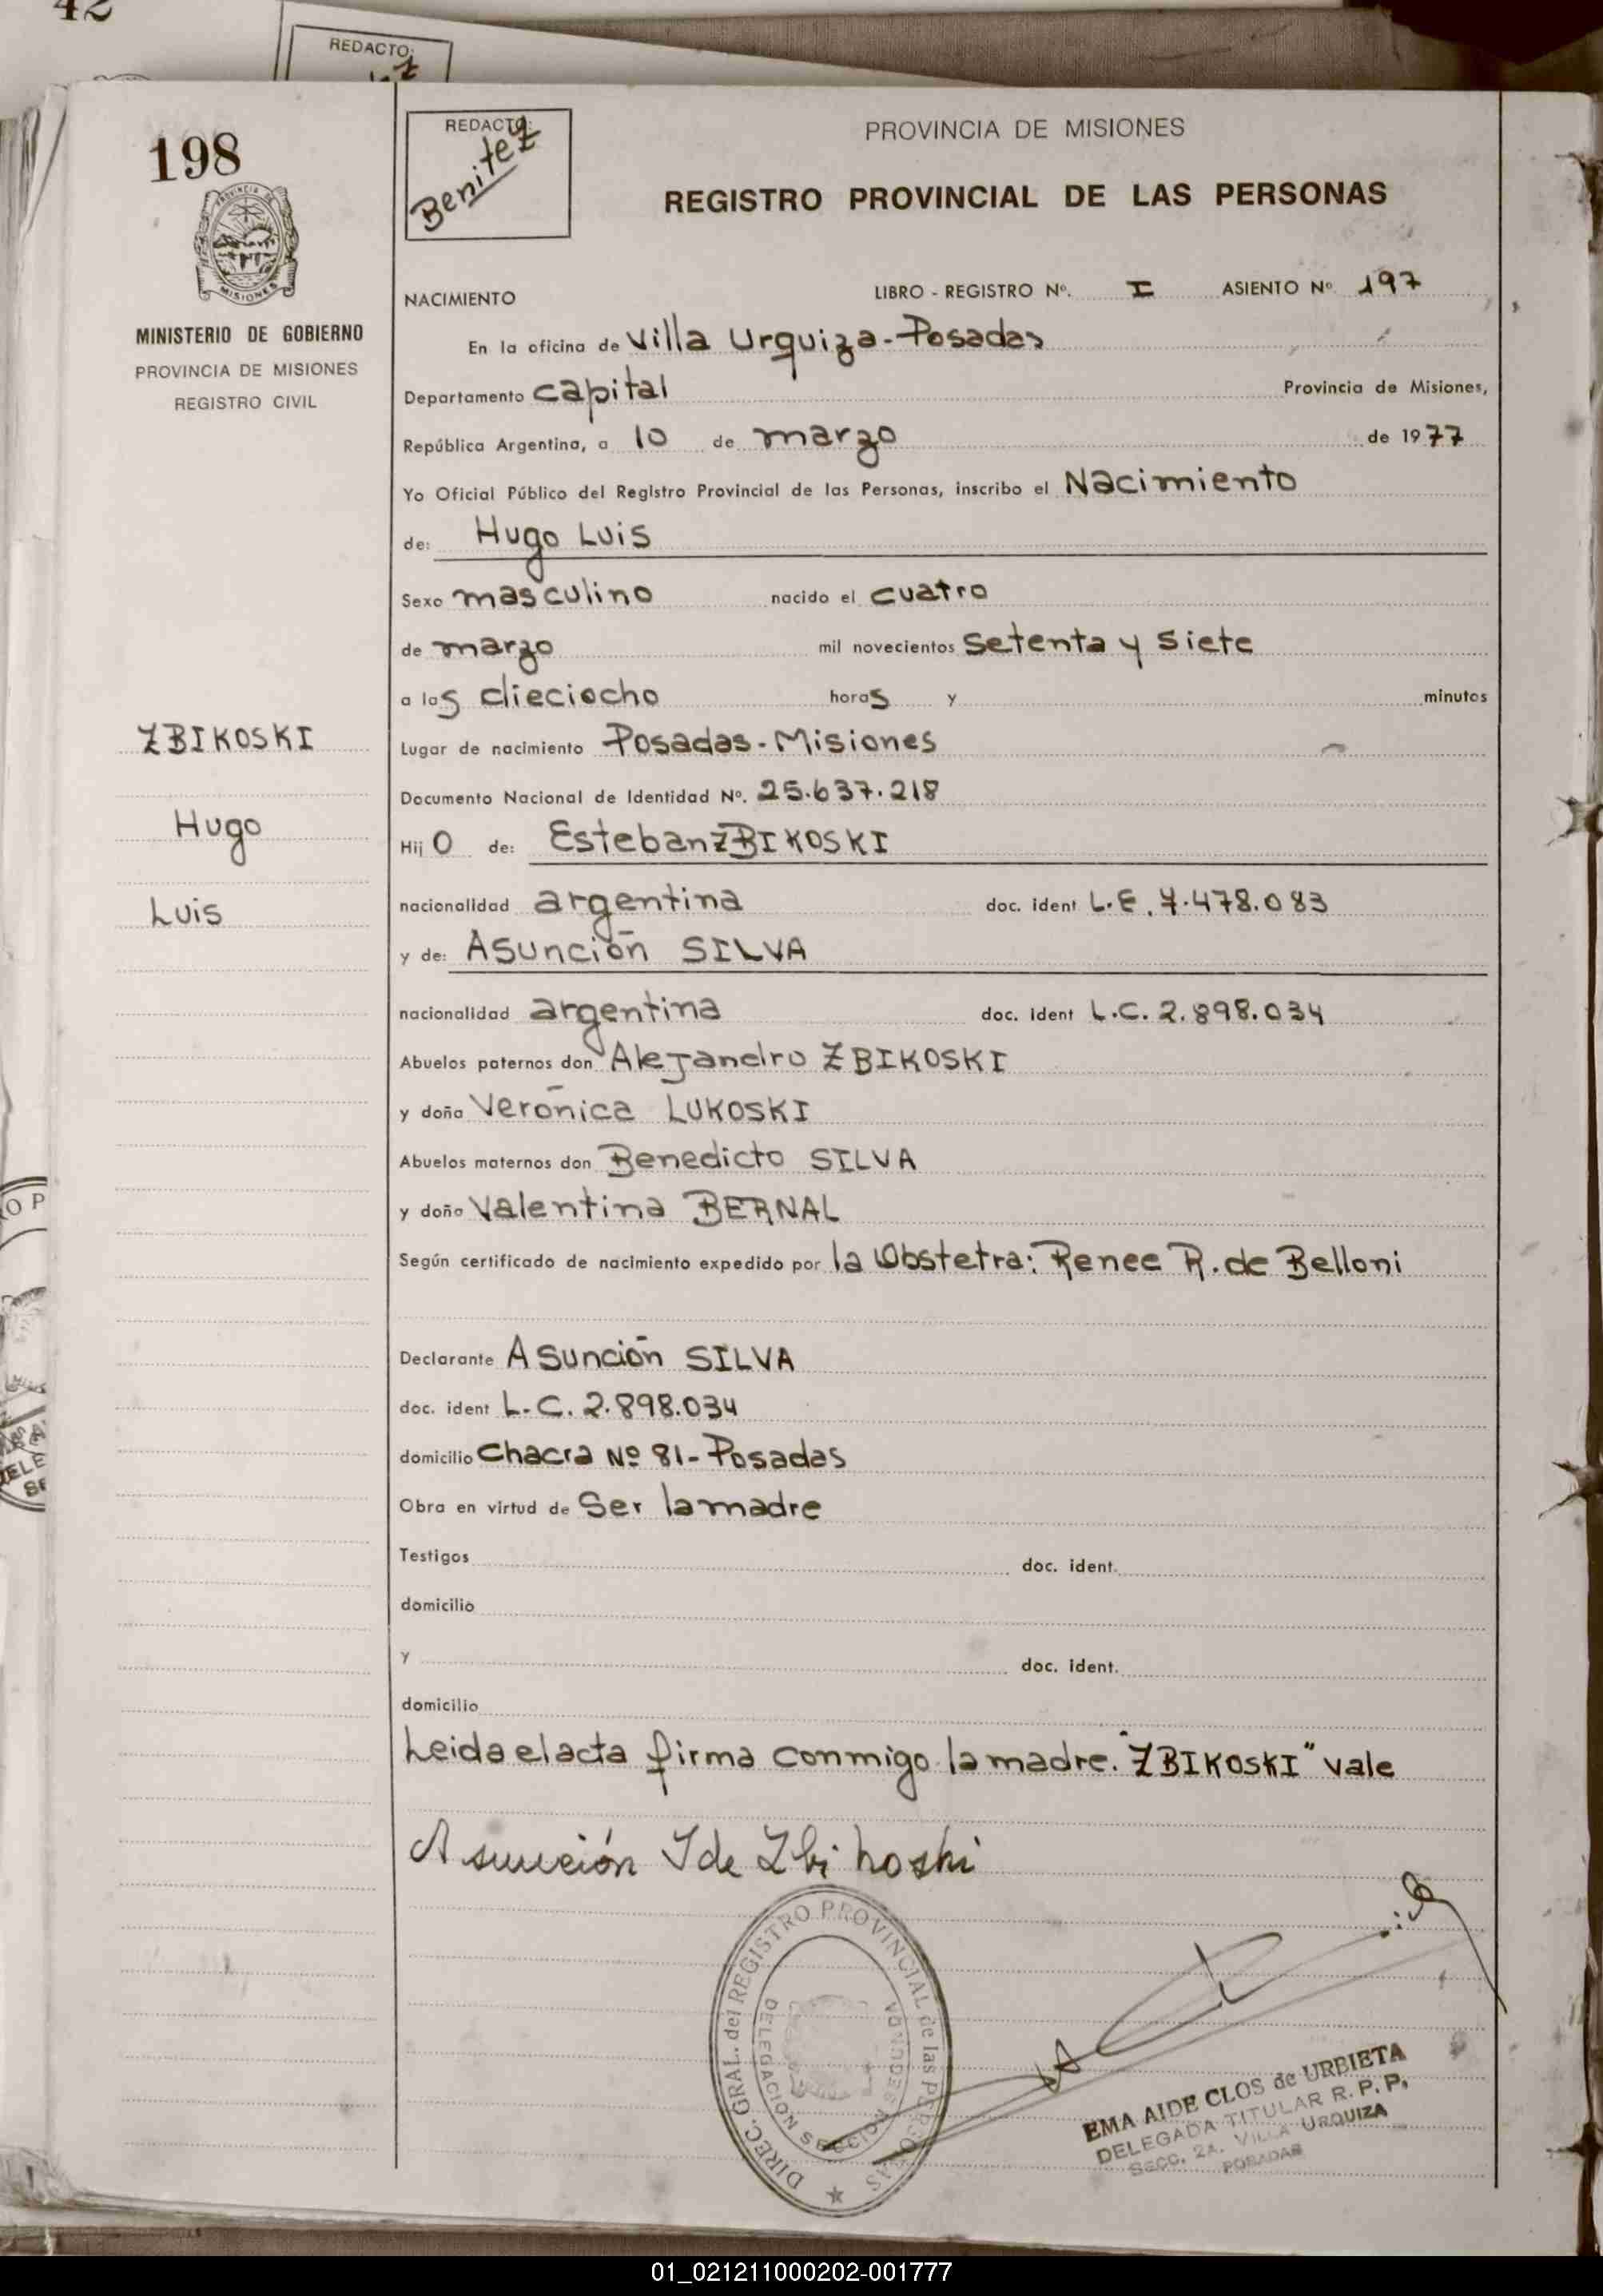 42
REDACTO:
198
REDACTO:
Benitez
PROVINCIA DE MISIONES
REGISTRO PROVINCIAL DE LAS PERSONAS
MISIONES
MINISTERIO DE GOBIERNO
PROVINCIA DE MISIONES
REGISTRO CIVIL
NACIMIENTO LIBRO - REGISTRO Nº. I ASIENTO Nº 197
En la oficina de Villa Urquiza-Posadas
Departamento capital Provincia de Misiones,
República Argentina, a 10 de marzo de 1977
Yo Oficial Público del Registro Provincial de las Personas, inscribo el Nacimiento
de: Hugo Luis
Sexo masculino nacido el cuatro
de marzo mil novecientos setenta y siete
a las dieciocho horas y minutos
ZBIKOSKI
Hugo
Luis
Lugar de nacimiento Posadas-Misiones
Documento Nacional de Identidad Nº. 25.637.218
Hijo de: Esteban ZBIKOSKI
nacionalidad argentina doc. ident L.E. 7.478.083
y de: Asunción SILVA
nacionalidad argentina doc. ident L.C. 2.898.034
Abuelos paternos don Alejandro ZBIKOSKI
y doña Verónica LUKOSKI
Abuelos maternos don Benedicto SILVA
y doña Valentina BERNAL
Según certificado de nacimiento expedido por la Obstetra: Renee R. de Belloni
Declarante Asunción SILVA
doc. ident L.C. 2.898.034
domicilio Chacra Nº 81-Posadas
Obra en virtud de Ser la madre
Testigos doc. ident.
domicilio
y doc. ident.
domicilio
Leida el acta firma conmigo la madre. "ZBIKOSKI" vale
Asunción S de Zbikoski
DIREC. GRAL. del REGISTRO PROVINCIAL de las PERSONAS
DELEGACION SECCION SEGUNDA
EMA AIDE CLOS de URBIETA
DELEGADA TITULAR R. P. P.
SECC. 2A. VILLA URQUIZA
POSADAS
01_021211000202-001777